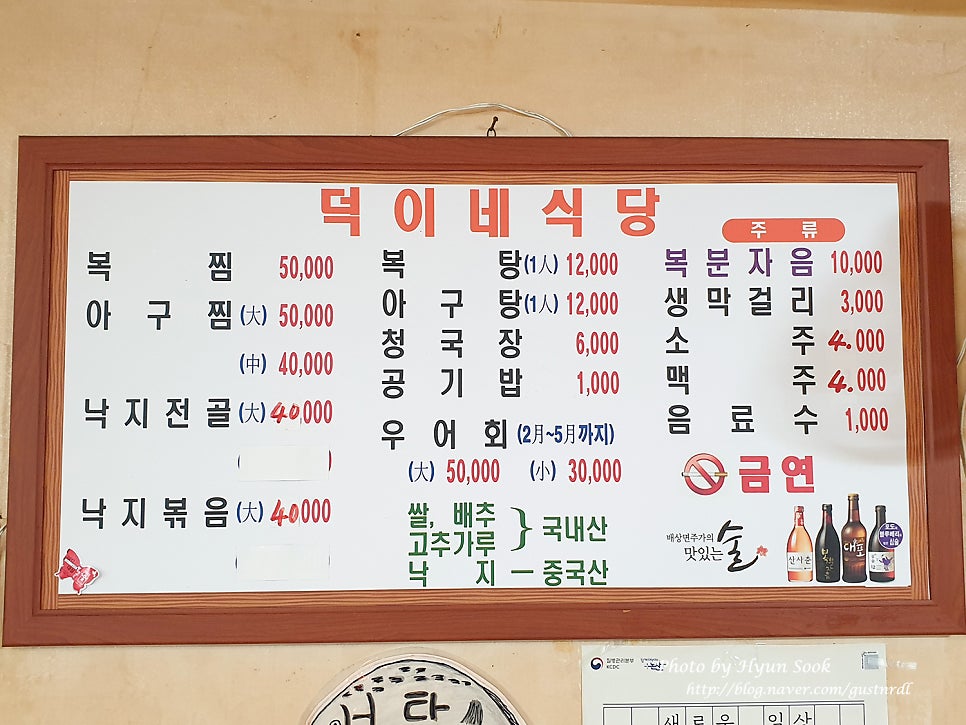 덕이네식당
복찜 50,000
아구찜 (大) 50,000
(中) 40,000
낙지전골 (大) 40,000
낙지볶음 (大) 40,000
복탕(1人) 12,000
아구탕(1人) 12,000
청국장 6,000
공기밥 1,000
우어회 (2月~5月까지)
(大) 50,000 (小) 30,000
쌀, 배추
고추가루 } 국내산
낙지 — 중국산
주류
복분자음 10,000
생막걸리 3,000
소주 4.000
맥주 4.000
음료수 1,000
금연
배상면주가의
맛있는 술
산사춘
대포
질병관리본부
KCDC
Photo by Hyun Sook
http://blog.naver.com/gustnrdl
새로운 일상